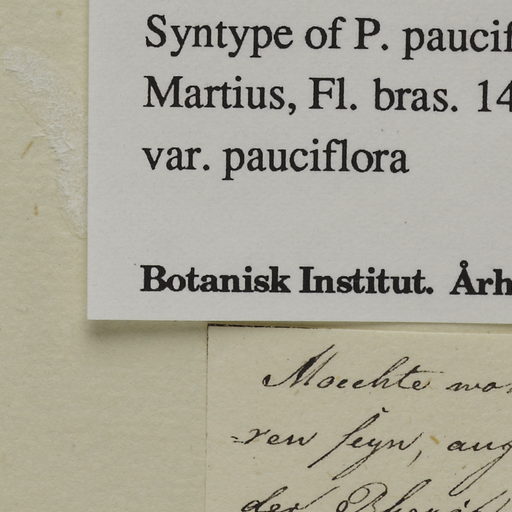 Syntype of P. paucif
Martius, Fl. bras. 14
var. pauciflora
Botanisk Institut. Årh
Moechte wo
=ren seyn, aug
der